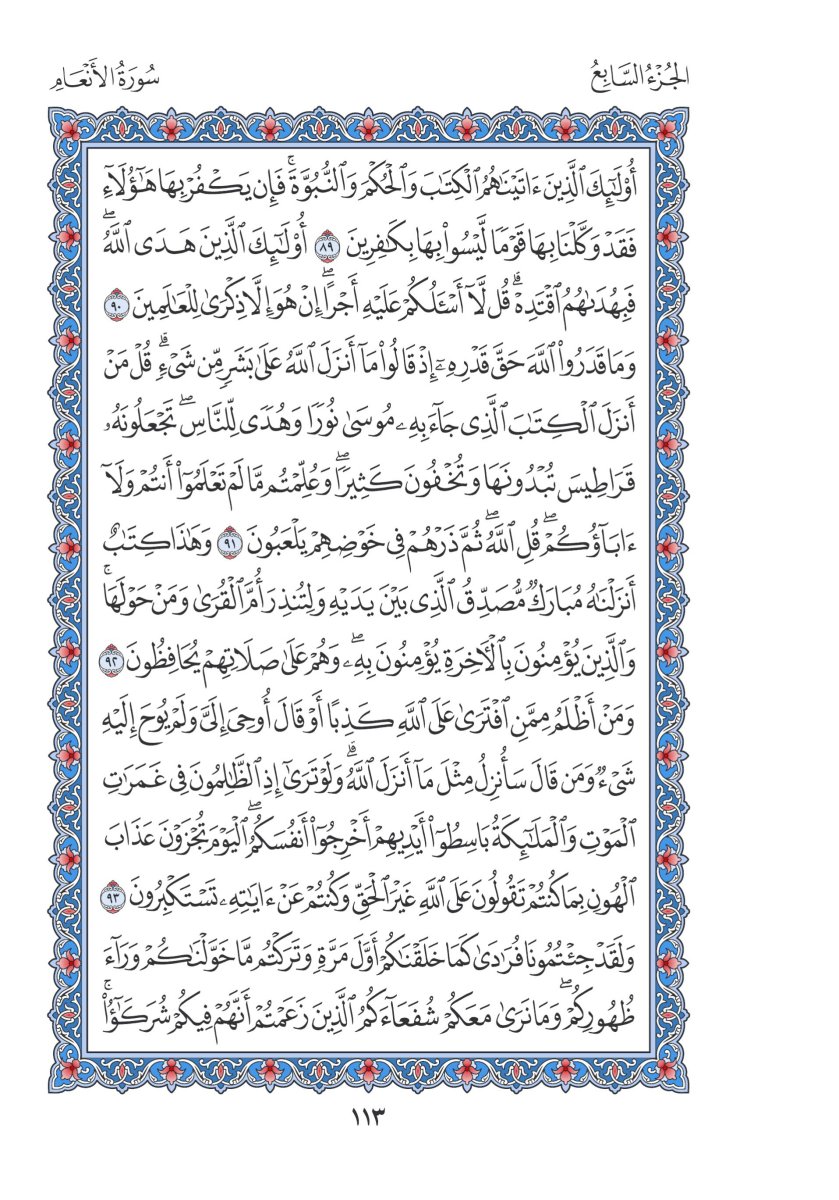 الجُزْءُ السَّابِعُ
سُورَةُ الأَنْعَامِ
أُوْلَٰٓئِكَ ٱلَّذِينَ ءَاتَيْنَٰهُمُ ٱلْكِتَٰبَ وَٱلْحُكْمَ وَٱلنُّبُوَّةَۚ فَإِن يَكْفُرْ بِهَا هَٰٓؤُلَآءِ
فَقَدْ وَكَّلْنَا بِهَا قَوْمًا لَّيْسُوا۟ بِهَا بِكَٰفِرِينَ ٨٩ أُوْلَٰٓئِكَ ٱلَّذِينَ هَدَى ٱللَّهُۖ
فَبِهُدَىٰهُمُ ٱقْتَدِهْۗ قُل لَّآ أَسْـَٔلُكُمْ عَلَيْهِ أَجْرًاۖ إِنْ هُوَ إِلَّا ذِكْرَىٰ لِلْعَٰلَمِينَ ٩٠
وَمَا قَدَرُوا۟ ٱللَّهَ حَقَّ قَدْرِهِۦٓ إِذْ قَالُوا۟ مَآ أَنزَلَ ٱللَّهُ عَلَىٰ بَشَرٍ مِّن شَىْءٍۗ قُلْ مَنْ
أَنزَلَ ٱلْكِتَٰبَ ٱلَّذِى جَآءَ بِهِۦ مُوسَىٰ نُورًا وَهُدًى لِّلنَّاسِۖ تَجْعَلُونَهُۥ
قَرَاطِيسَ تُبْدُونَهَا وَتُخْفُونَ كَثِيرًاۖ وَعُلِّمْتُم مَّا لَمْ تَعْلَمُوٓا۟ أَنتُمْ وَلَآ
ءَابَآؤُكُمْۖ قُلِ ٱللَّهُۖ ثُمَّ ذَرْهُمْ فِى خَوْضِهِمْ يَلْعَبُونَ ٩١ وَهَٰذَا كِتَٰبٌ
أَنزَلْنَٰهُ مُبَارَكٌ مُّصَدِّقُ ٱلَّذِى بَيْنَ يَدَيْهِ وَلِتُنذِرَ أُمَّ ٱلْقُرَىٰ وَمَنْ حَوْلَهَاۚ
وَٱلَّذِينَ يُؤْمِنُونَ بِٱلْأَخِرَةِ يُؤْمِنُونَ بِهِۦۖ وَهُمْ عَلَىٰ صَلَاتِهِمْ يُحَافِظُونَ ٩٢
وَمَنْ أَظْلَمُ مِمَّنِ ٱفْتَرَىٰ عَلَى ٱللَّهِ كَذِبًا أَوْ قَالَ أُوحِىَ إِلَىَّ وَلَمْ يُوحَ إِلَيْهِ
شَىْءٌ وَمَن قَالَ سَأُنزِلُ مِثْلَ مَآ أَنزَلَ ٱللَّهُۗ وَلَوْ تَرَىٰٓ إِذِ ٱلظَّٰلِمُونَ فِى غَمَرَٰتِ
ٱلْمَوْتِ وَٱلْمَلَٰٓئِكَةُ بَاسِطُوٓا۟ أَيْدِيهِمْ أَخْرِجُوٓا۟ أَنفُسَكُمُۖ ٱلْيَوْمَ تُجْزَوْنَ عَذَابَ
ٱلْهُونِ بِمَا كُنتُمْ تَقُولُونَ عَلَى ٱللَّهِ غَيْرَ ٱلْحَقِّ وَكُنتُمْ عَنْ ءَايَٰتِهِۦ تَسْتَكْبِرُونَ ٩٣
وَلَقَدْ جِئْتُمُونَا فُرَٰدَىٰ كَمَا خَلَقْنَٰكُمْ أَوَّلَ مَرَّةٍ وَتَرَكْتُم مَّا خَوَّلْنَٰكُمْ وَرَآءَ
ظُهُورِكُمْۖ وَمَا نَرَىٰ مَعَكُمْ شُفَعَآءَكُمُ ٱلَّذِينَ زَعَمْتُمْ أَنَّهُمْ فِيكُمْ شُرَكَٰٓؤُا۟ۚ
١١٣